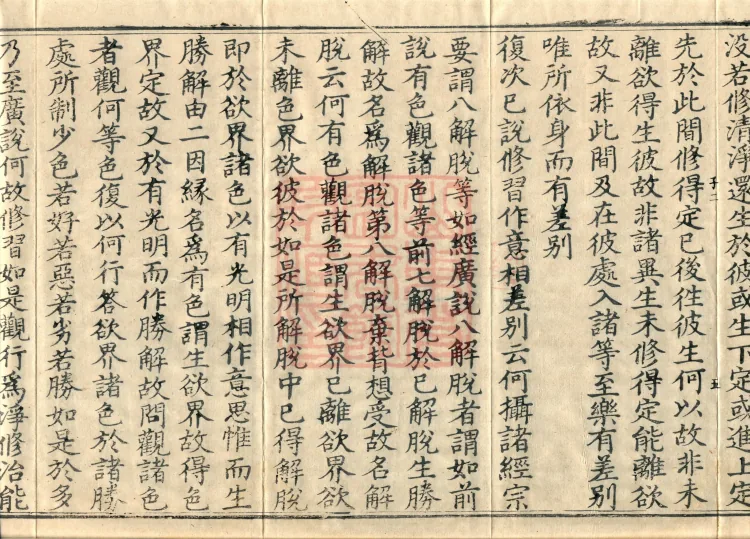 没若修清淨還生於彼或生下定或進上定
先於此間修得定已後徃彼生何以故非未
離欲得生彼故非諸異生未修得定能離欲
故又非此間及在彼處入諸等至樂有差别
唯所依身而有差别
復次已說修習作意相差别云何攝諸經宗
要謂八解脫等如經廣說八解脫者謂如前
說有色觀諸色等前七解脫於已解脫生勝
解故名爲解脫第八解脫棄背想受故名解
脫云何有色觀諸色謂生欲界已離欲界欲
未離色界欲彼於如是所解脫中已得解脫
即於欲界諸色以有光明相作意思惟而生
勝解由二因緣名爲有色謂生欲界故得色
界定故又於有光明而作勝解故問觀諸色
者觀何等色復以何行答欲界諸色於諸勝
處所制少色若好若惡若劣若勝如是於多
乃至廣說何故修習如是觀行爲淨修治能
五